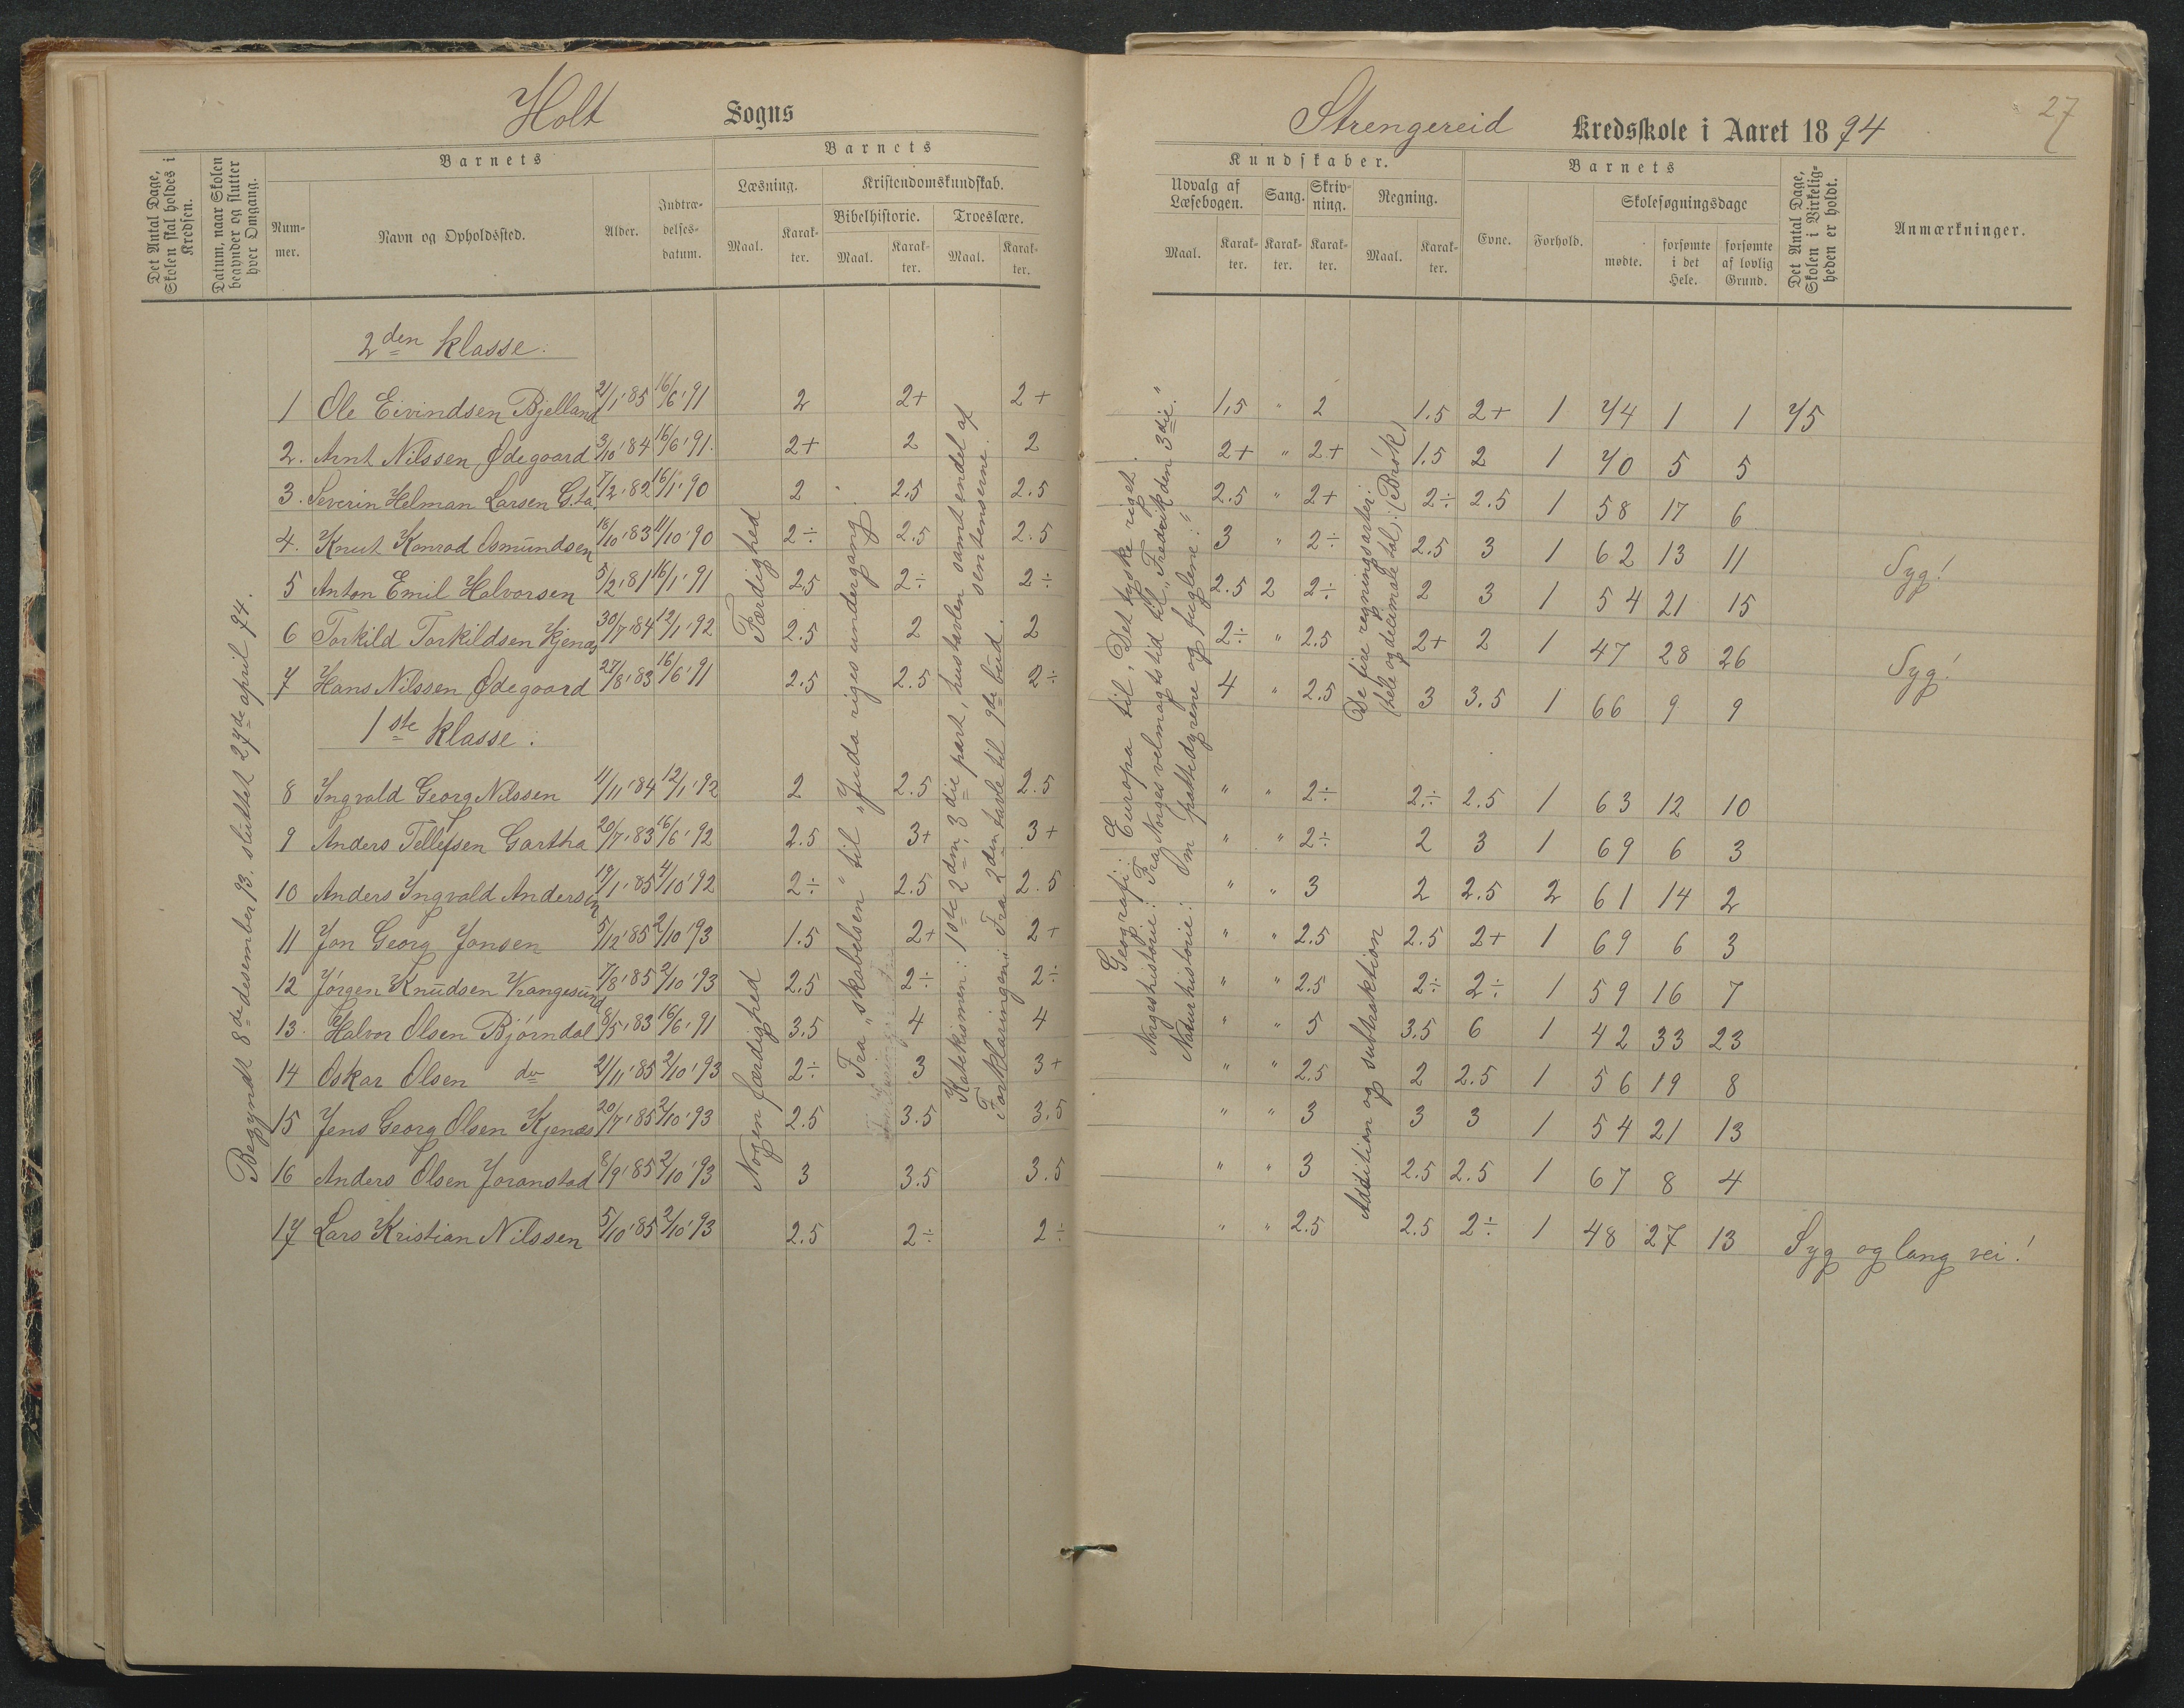 Holt Sogns
Strengereid Kredsskole i Aaret 1894
27
Det Antal Dage, Skolen skal holdes i Kredsen.
Datum, naar Skolen begynder og slutter hver Omgang.
Barnets
Num-mer.
Navn og Opholdssted.
Alder.
Indtræ-delses-datum.
Barnets
Læsning.
Maal.
Karak-ter.
Kristendomskundskab.
Bibelhistorie.
Maal.
Karak-ter.
Troeslære.
Maal.
Karak-ter.
Kundskaber.
Udvalg af Læsebogen.
Maal.
Karak-ter.
Sang.
Karak-ter.
Skriv-ning.
Karak-ter.
Regning.
Maal.
Karak-ter.
Barnets
Evne.
Forhold.
Skolesøgningsdage
mødte.
forsømte i det Hele.
forsømte af lovlig Grund.
Det Antal Dage, Skolen i Virkelig-heden er holdt.
Anmærkninger.
Begyndt 8de desember 93. sluttet 27de april 94.
2den klasse:
1 Ole Eivindsen Bjelland 21/1'85 16/6'91 2 2+ 2+ 1,5 " 2 1.5 2+ 1 74 1 1 75
2. Arnt Nilssen Ødegaard 3/10'84 16/6'91. 2+ 2 2 2+ " 2+ 1.5 2 1 70 5 5
3. Severin Helman Larsen G.ta. 7/2'82 16/1'90 2 2.5 2.5 2.5 " 2+ 2÷ 2.5 1 58 17 6
4. Knut Konrad Asmundsen 18/10'83 11/10'90 2÷ 2.5 2.5 3 " 2÷ 2.5 3 1 62 13 11
5 Anton Emil Halvorsen 5/2'81 16/1'91 2.5 2÷ 2÷ 2.5 2 2÷ 2 3 1 54 21 15 Syg!
6 Torkild Torkildsen Kjenæs 30/7'84 12/1'92 2.5 2 2 2÷ " 2.5 2+ 2 1 47 28 26
7 Hans Nilssen Ødegaard 27/8'83 16/6'91 2.5 2.5 2÷ 4 " 2.5 3 3.5 1 66 9 9 Syg!
1ste klasse:
8 Ingvald Georg Nilssen 11/11'84 12/1'92 2 2.5 2.5 " " 2÷ 2÷ 2.5 1 63 12 10
9 Anders Tellefsen Gartha 20/7'83 16/6'92 2.5 3+ 3+ " " 2÷ 2 3 1 69 6 3
10 Anders Yngvald Andersen 19/1'85 4/10'92 2÷ 2.5 2.5 " " 3 2 2.5 2 61 14 2
11 Jon Georg Jonsen 5/12'85 2/10'93 1.5 2+ 2+ " " 2.5 2.5 2+ 1 69 6 3
12 Jörgen Knudsen Vrangesund 7/8'85 2/10'93 2.5 2÷ 2÷ " " 2.5 2÷ 2÷ 1 59 16 7
13. Halvor Olsen Björndal 8/5'83 16/6'91 3.5 4 4 " " 5 3.5 6 1 42 33 23
14 Oskar Olsen do 21/11'85 2/10'93 2÷ 3 3+ " " 2.5 2 2.5 1 56 19 8
15 Jens Georg Olsen Kjenæs 20/7'85 2/10'93 2.5 3.5 3.5 " " 3 3 3 1 54 21 13
16 Anders Olsen Joranstad 8/9'85 2/10'93 3 3.5 3.5 " " 3 2.5 2.5 1 67 8 4
17 Lars Kristian Nilssen 5/10'85 2/10'93 2.5 2÷ 2÷ " " 2.5 2.5 2÷ 1 48 27 13 Syg og lang vei!
Færdighed
Nogen færdighed
Fra „skabelsen" til „Juda riges undergang."
Katekismen: 1ste, 2den, 3die part, hustavlen samt endel af sentenserne.
Forklaringen: Fra 2den tavle til 9de bud.
Geografi: Europa til „Det tyske riget".
Norgeshistorie: Fra „Norges velmagtstid til „Fredrik den 3die."
Naturhistorie: Om „pattedyrene og fuglene:"
De fire regningsarter:
(hele og decimale tal). (Brøk)
Addition og subtraktion